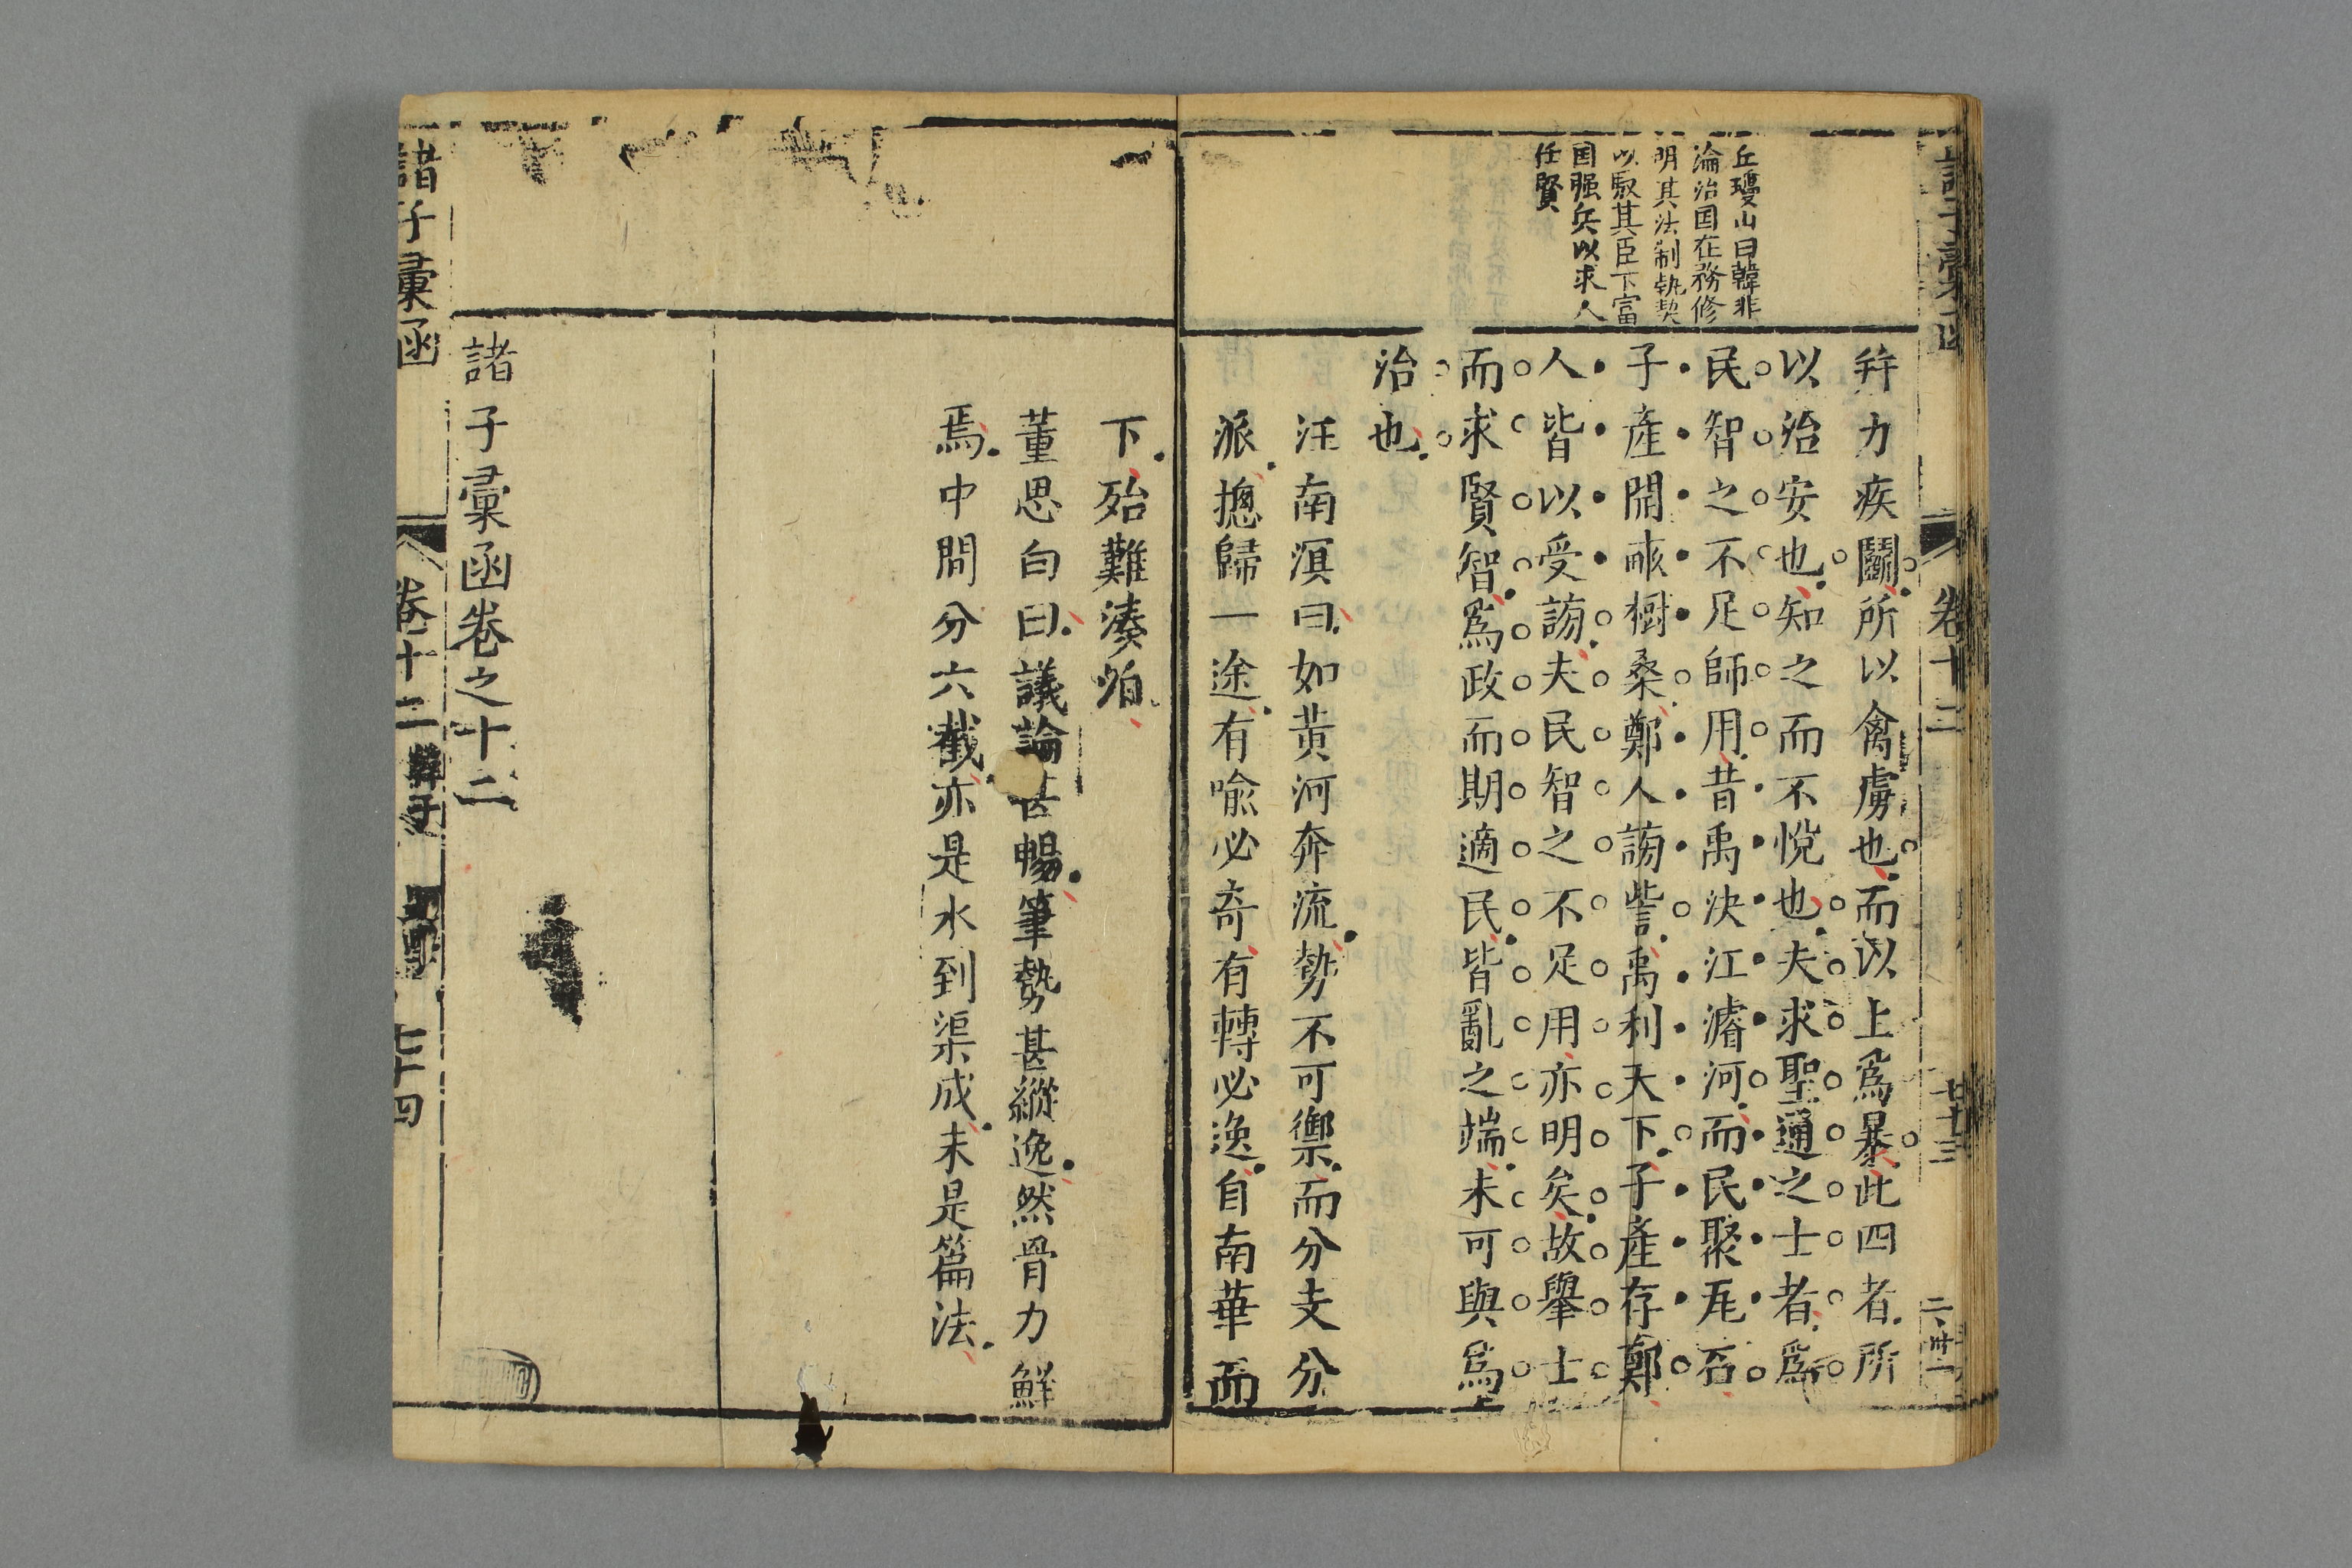 丘瓊山曰韓非
論治囯在務修
明其法制執契
以馭其臣下富
囯强兵以求人
任賢
幷力疾鬭所以禽虜也而以上爲暴此四者所
以治安也知之而不悅也夫求聖通之士者爲
民智之不足師用昔禹決江濬河而民聚瓦石
子產開畞樹桑鄭人謗訾禹利天下子產存鄭
人皆以受謗夫民智之不足用亦明矣故舉士
而求賢智爲政而期適民皆亂之端未可與爲
治也
汪南溟曰如黃河奔流勢不可禦而分支分
派摠歸一途有喻必奇有轉必逸自南華而
下殆難湊泊
董思白曰議論甚暢筆勢甚縱逸然骨力鮮
焉中間分六截亦是水到渠成未是篇法
諸子彙函卷之十二
諸子彙函 卷十二 韓子 七十四
卷十二 七十三